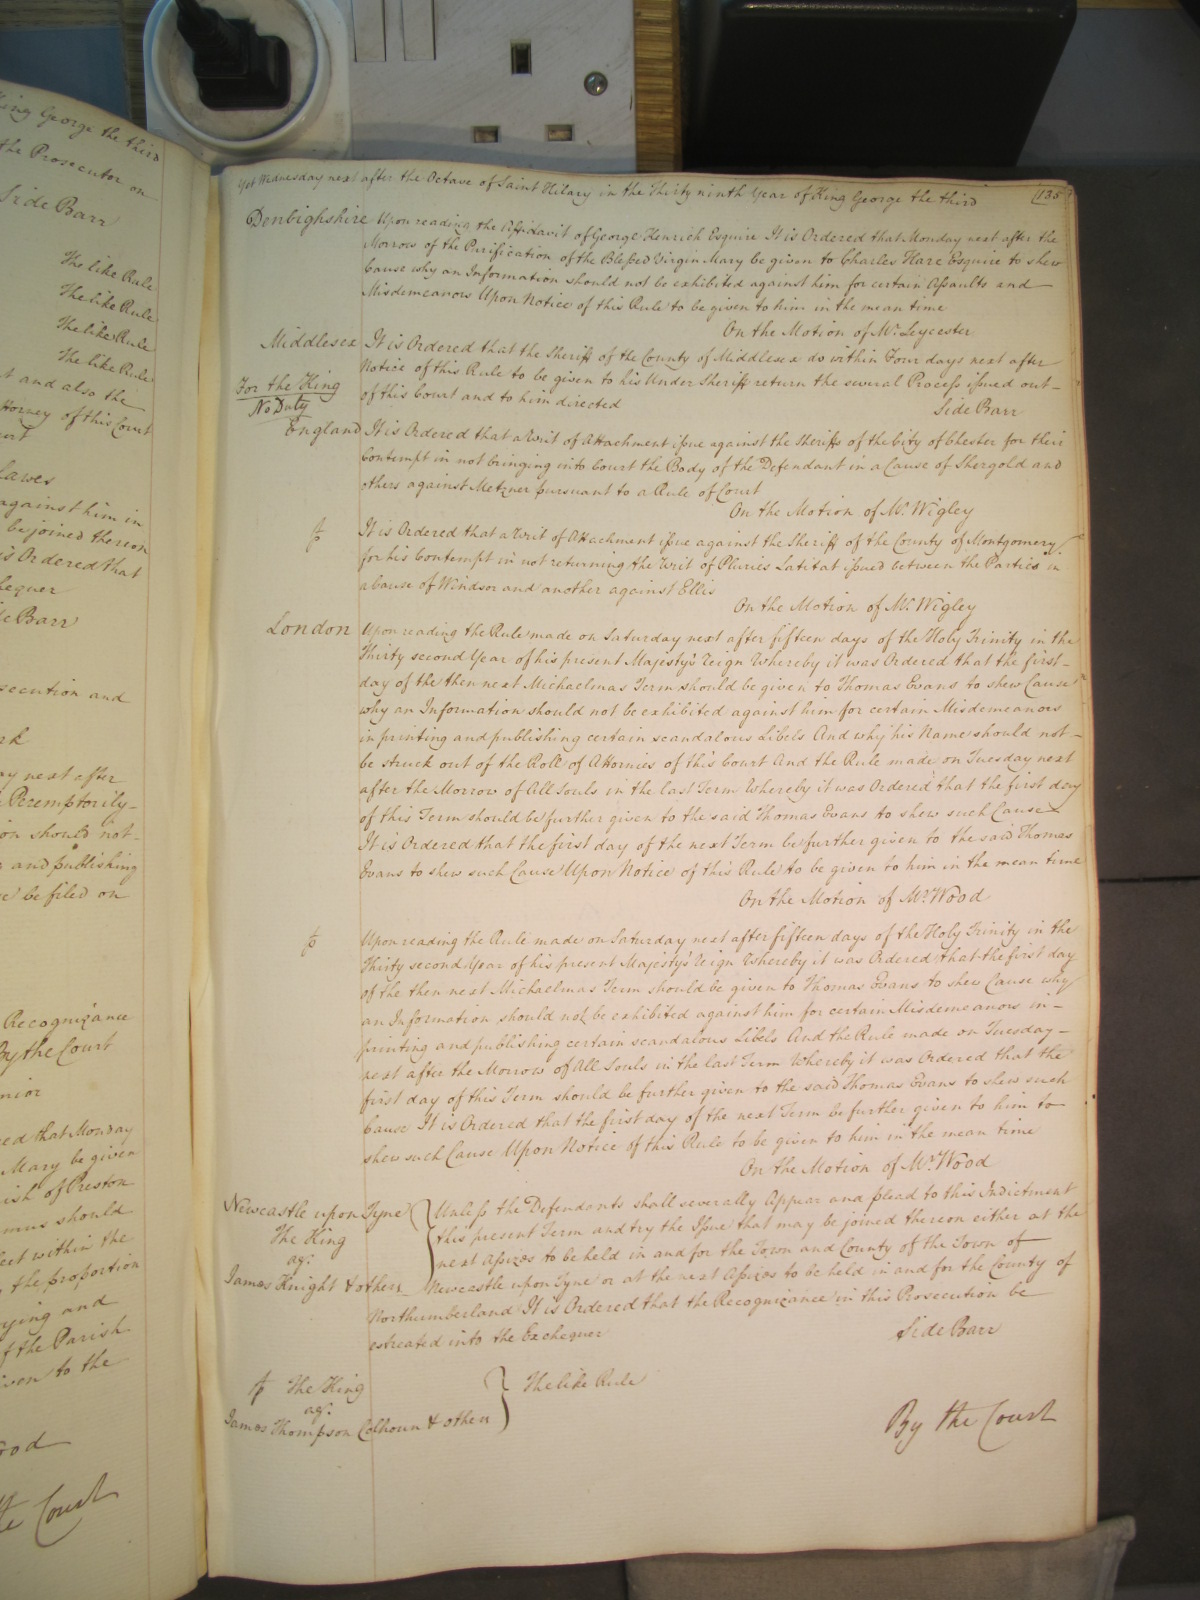 King George the third
the Prosecutor on
Side Barr
The like Rule
The like Rule
The like Rule
The like Rule
and also the
Attorney of this Court
against him in
be joined thereon
is Ordered that
Barr
and
next after
Peremptorily
should not
and publishing
be filed on
Recognizance
By the Court
that Monday
Mary be given
of Preston
should
within the
the proportion
and
of the Parish
to the
Court
Yet Wednesday next after the Octave of Saint Hilary in the Thirty ninth Year of King George the third
135
Denbighshire Upon reading the Affidavit of George Henrich Esquire It is Ordered that Monday next after the
Morrow of the Purification of the Blessed Virgin Mary be given to Charles Hare Esquire to shew
Cause why an Information should not be exhibited against him for certain Assaults and
Misdemeanors Upon Notice of this Rule to be given to him in the mean time
On the Motion of Mr. Leycester
Middlesex It is Ordered that the Sheriff of the County of Middlesex do within Four days next after
Notice of this Rule to be given to his Under Sheriff return the several Process issued out
For the King
No Duty
of this Court and to him directed Side Barr
England It is Ordered that a Writ of Attachment issue against the Sheriffs of the City of Chester for their
Contempt in not bringing into Court the Body of the Defendant in a Cause of Shergold and
others against Metzner pursuant to a Rule of Court
On the Motion of Mr. Wigley
It is Ordered that a Writ of Attachment issue against the Sheriff of the County of Montgomery
for his Contempt in not returning the Writ of Pluries Latitat issued between the Parties in
a Cause of Windsor and another against Ellis
On the Motion of Mr. Wigley
London Upon reading the Rule made on Saturday next after fifteen days of the Holy Trinity in the
Thirty second Year of his present Majesty's Reign Whereby it was Ordered that the first
day of the then next Michaelmas Term should be given to Thomas Evans to shew Cause
why an Information should not be exhibited against him for certain Misdemeanors
in printing and publishing certain scandalous Libels And why his Name should not
be struck out of the Roll of Attornies of this Court And the Rule made on Tuesday next
after the Morrow of All Souls in the last Term Whereby it was Ordered that the first day
of this Term should be further given to the said Thomas Evans to shew such Cause
It is Ordered that the first day of the next Term be further given to the said Thomas
Evans to shew such Cause Upon Notice of this Rule to be given to him in the mean time
On the Motion of Mr. Wood
Upon reading the Rule made on Saturday next after fifteen days of the Holy Trinity in the
Thirty second Year of his present Majesty's Reign Whereby it was Ordered that the first day
of the then next Michaelmas Term should be given to Thomas Evans to shew Cause why
an Information should not be exhibited against him for certain Misdemeanors in
printing and publishing certain scandalous Libels And the Rule made on Tuesday
next after the Morrow of All Souls in the last Term Whereby it was Ordered that the
first day of this Term should be further given to the said Thomas Evans to shew such
Cause It is Ordered that the first day of the next Term be further given to him to
shew such Cause Upon Notice of this Rule to be given to him in the mean time
On the Motion of Mr. Wood
Newcastle upon Tyne
The King
agt.
James Knight & others
Unless the Defendants shall severally Appear and plead to this Indictment
this present Term and try the Issue that may be joined thereon either at the
next Assizes to be held in and for the Town and County of the Town of
Newcastle upon Tyne or at the next Assizes to be held in and for the County of
Northumberland It is Ordered that the Recognizance in this Prosecution be
estreated into the Exchequer Side Barr
The King
agt.
James Thompson Colhoun & others
The like Rule
By the Court